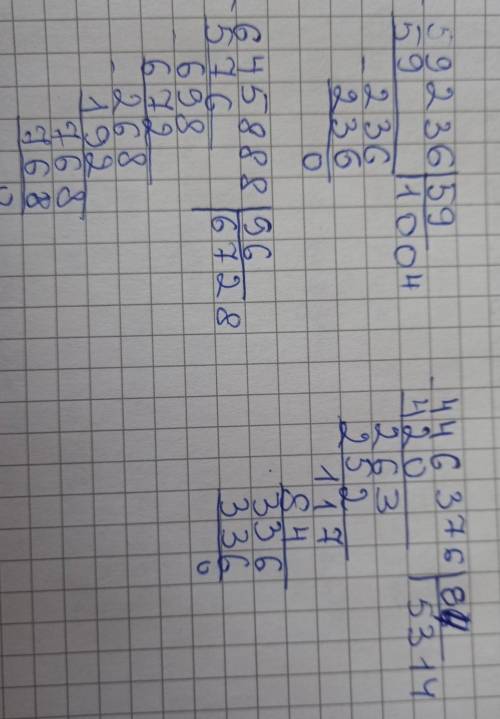 59236 | 59
59 | 1004
- 236
236
0
- 645888 | 96
576 | 6728
- 698
672
- 268
192
768
768
0
- 446376 | 84
420 | 5314
263
252
117
84
336
336
0